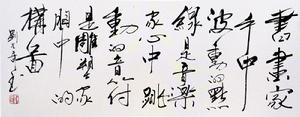 書畫家
手中
波動的點
線是音樂
家心中跳
動的音符
是雕塑家
胸中的
構圖